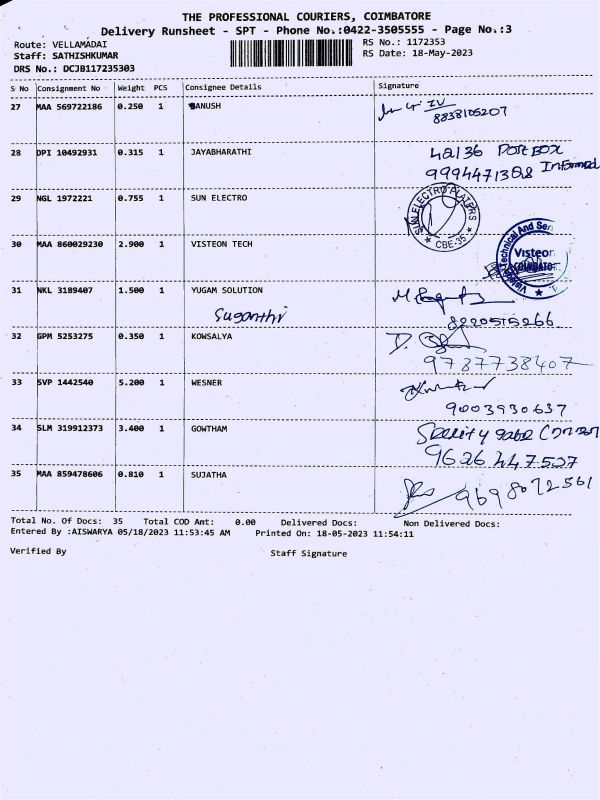 THE PROFESSIONAL COURIERS, COIMBATORE
Delivery Runsheet - SPT - Phone No.:0422-3505555 - Page No.:3
Route: VELLAMADAI
Staff: SATHISHKUMAR
DRS No.: DCJB117235303
RS No.: 1172353
RS Date: 18-May-2023
S No Consignment No Weight PCS Consignee Details Signature
27 MAA 569722186 0.250 1 BANUSH
IV
8838105207
28 DPI 10492931 0.315 1 JAYABHARATHI
Informed
29 NGL 1972221 0.755 1 SUN ELECTRO
SUN ELECTRO PLATERS
CBE-35
30 MAA 860029230 2.900 1 VISTEON TECH
Visteon Technical And Ser
Visteon
COIMBATO
31 NKL 3189407 1.500 1 YUGAM SOLUTION
Suganthi
8220515266
32 GPM 5253275 0.350 1 KOWSALYA
9787738407
33 SVP 1442540 5.200 1 WESNER
9003930637
34 SLM 319912373 3.400 1 GOWTHAM
9626447527
35 MAA 859478606 0.810 1 SUJATHA
9698072561
Total No. Of Docs: 35 Total COD Amt: 0.00 Delivered Docs: Non Delivered Docs:
Entered By :AISWARYA 05/18/2023 11:53:45 AM Printed On: 18-05-2023 11:54:11
Verified By Staff Signature